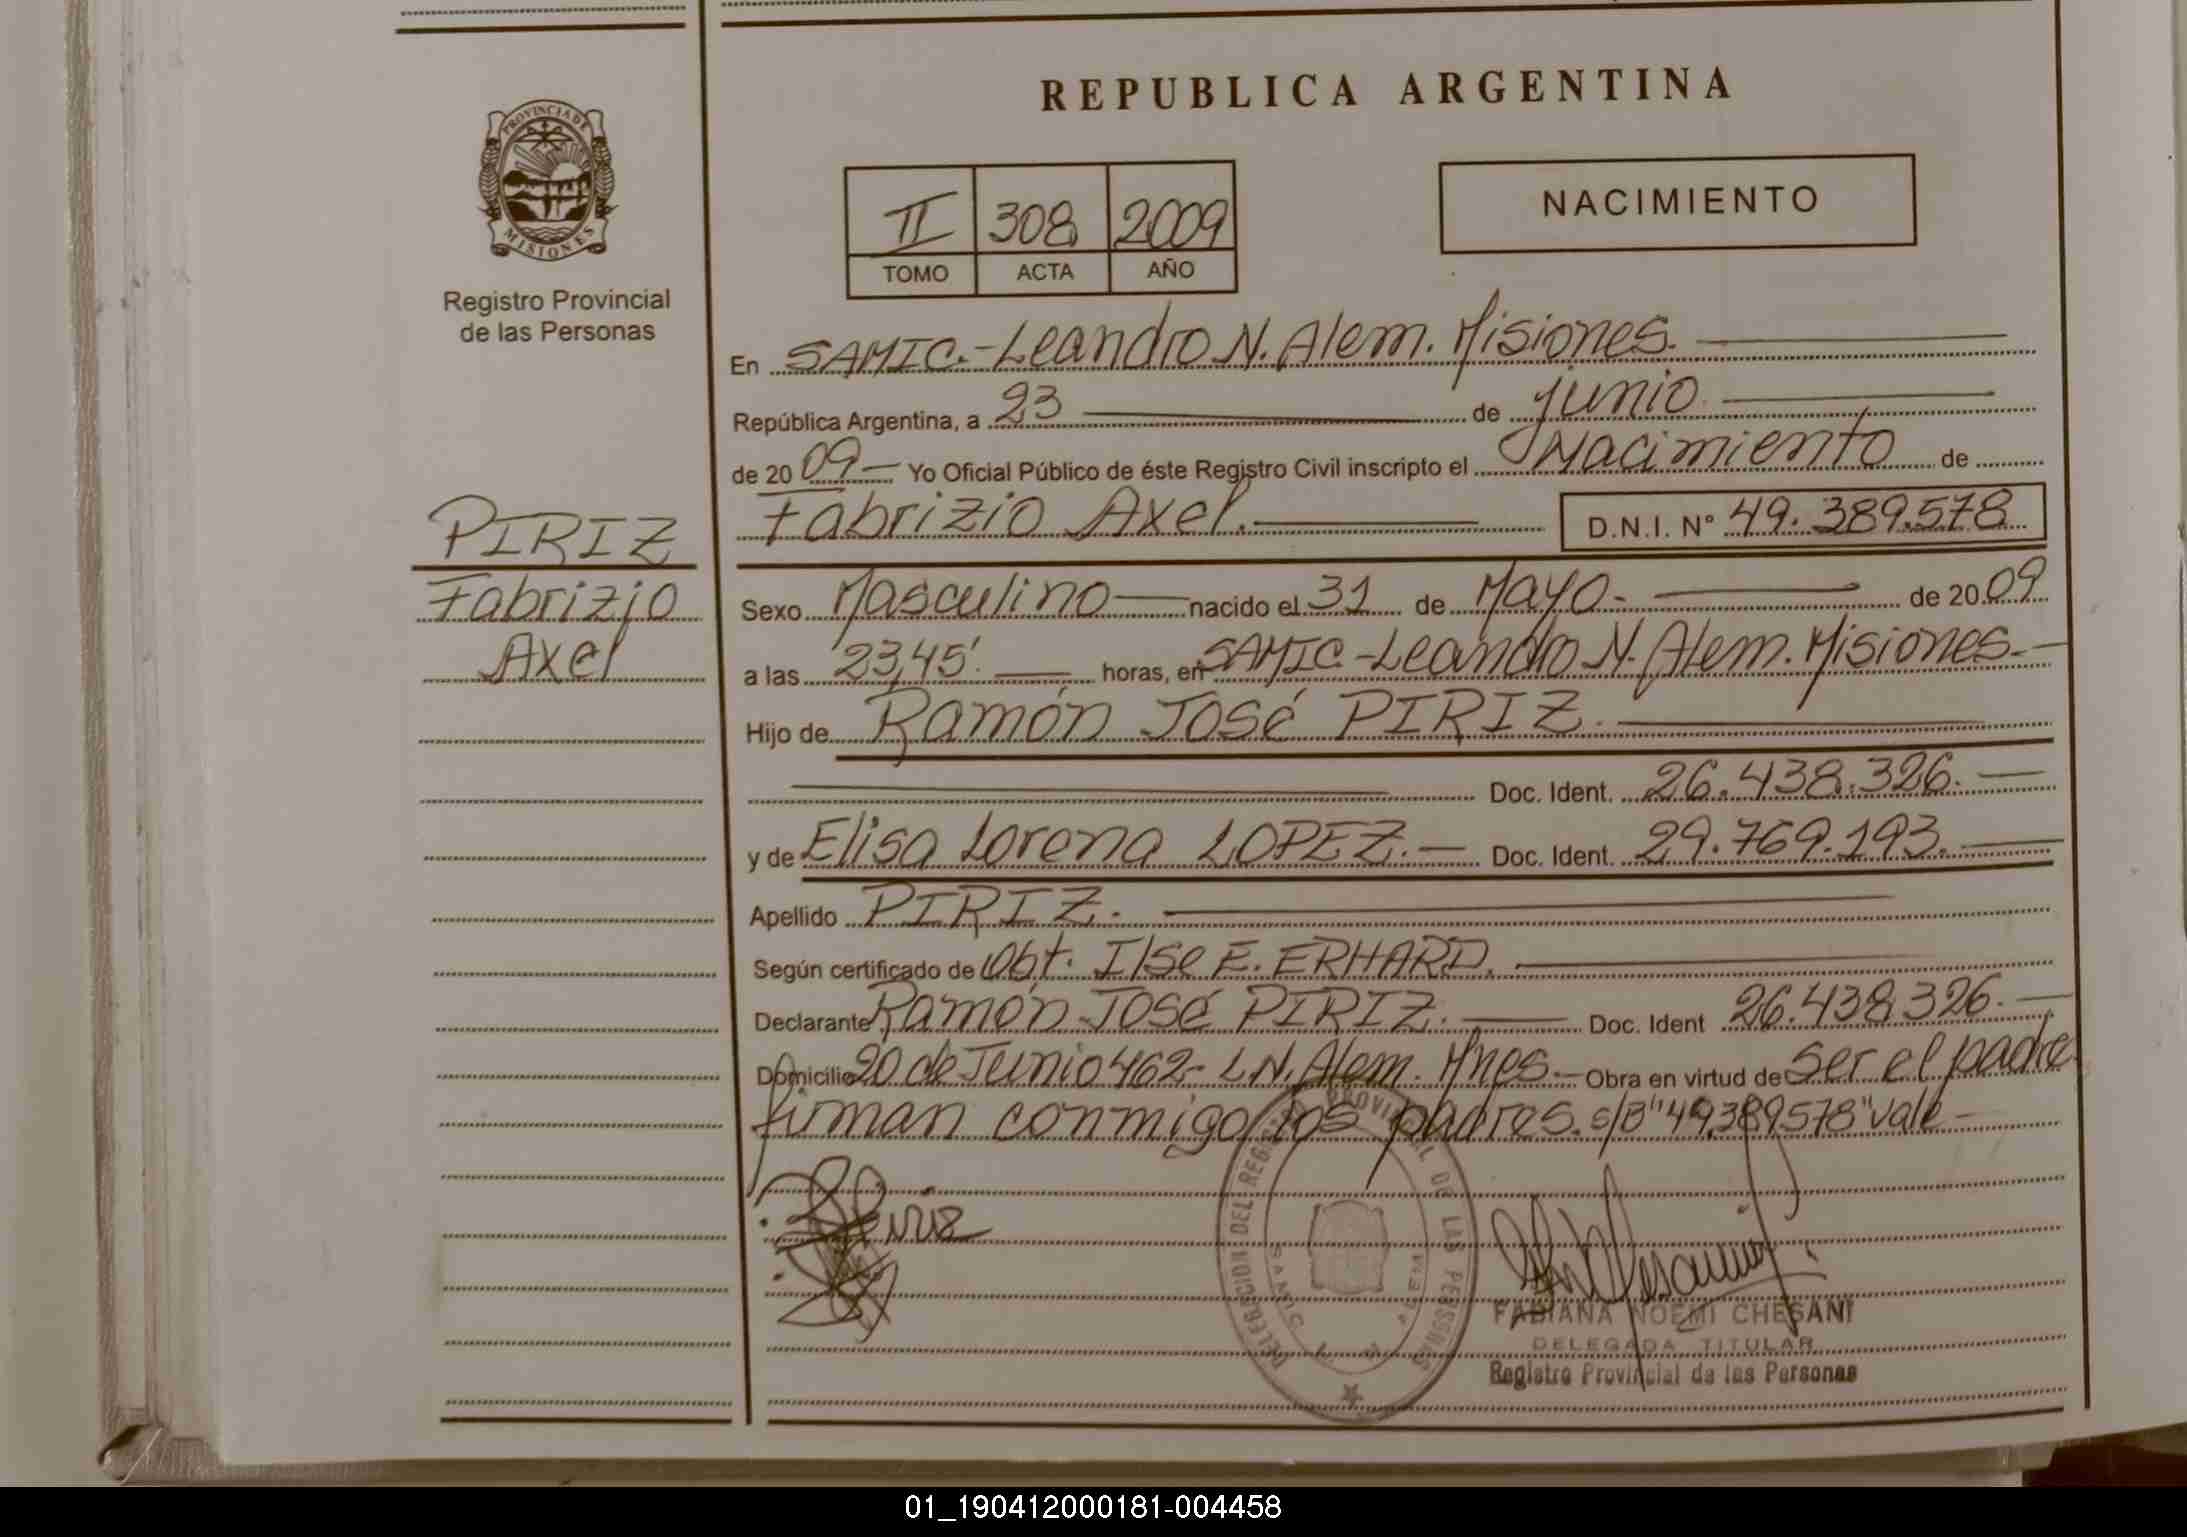 REPUBLICA ARGENTINA
PROVINCIA DE
MISIONES
Registro Provincial
de las Personas
II 308 2009
TOMO ACTA AÑO
NACIMIENTO
En SAMIC.-Leandro N. Alem. Misiones.
República Argentina, a 23 de junio
de 2009 Yo Oficial Público de éste Registro Civil inscripto el Nacimiento de
Fabrizio Axel. D.N.I. N° 49.389.578
PIRIZ
Fabrizio
Axel
Sexo Masculino nacido el 31 de Mayo. de 2009
a las 23,45'. horas, en SAMIC-Leandro N. Alem. Misiones.
Hijo de Ramón José PIRIZ.
Doc. Ident. 26.438.326.
y de Elisa Lorena LOPEZ. Doc. Ident. 29.769.193.
Apellido PIRIZ.
Según certificado de Obt. Ilse E. ERHARD.
Declarante Ramón José PIRIZ. Doc. Ident 26.438.326.
Domicilio 20 de Junio 462.- L.N. Alem. Mnes. Obra en virtud de Ser el padre
firman conmigo los padres. s/B "49.389.578" vale
DELEGACION DEL REGISTRO PROVINCIAL DE LAS PERSONAS
SAMIC L. N. ALEM
FABIANA NOEMI CHESANI
DELEGADA TITULAR
Registro Provincial de las Personas
01_190412000181-004458